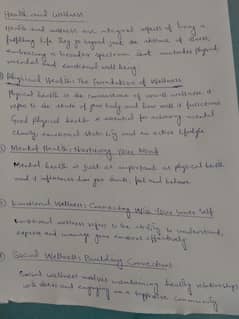 Health and Wellness
Health and wellness are integral aspects of living a
fulfilling life. They go beyond just the absence of illness,
embracing a broader spectrum that includes physical,
mental and emotional well being.
① Physical Health: The Foundation of Wellness
Physical health is the cornerstone of overall wellness. It
refers to the state of your body and how well it functions
Good physical health is essential for achieving mental
clarity, emotional stability and an active lifestyle
② Mental Health: Nurturing Your Mind
Mental health is just as important as physical health
and it influences how you think, feel and behave
③ Emotional Wellness: Connecting With Your Inner Self
Emotional wellness refers to the ability to understand,
express and manage your emotions effectively
④ Social Wellness: Building Connections
Social wellness involves maintaining healthy relationships
with others and engaging in a supportive community